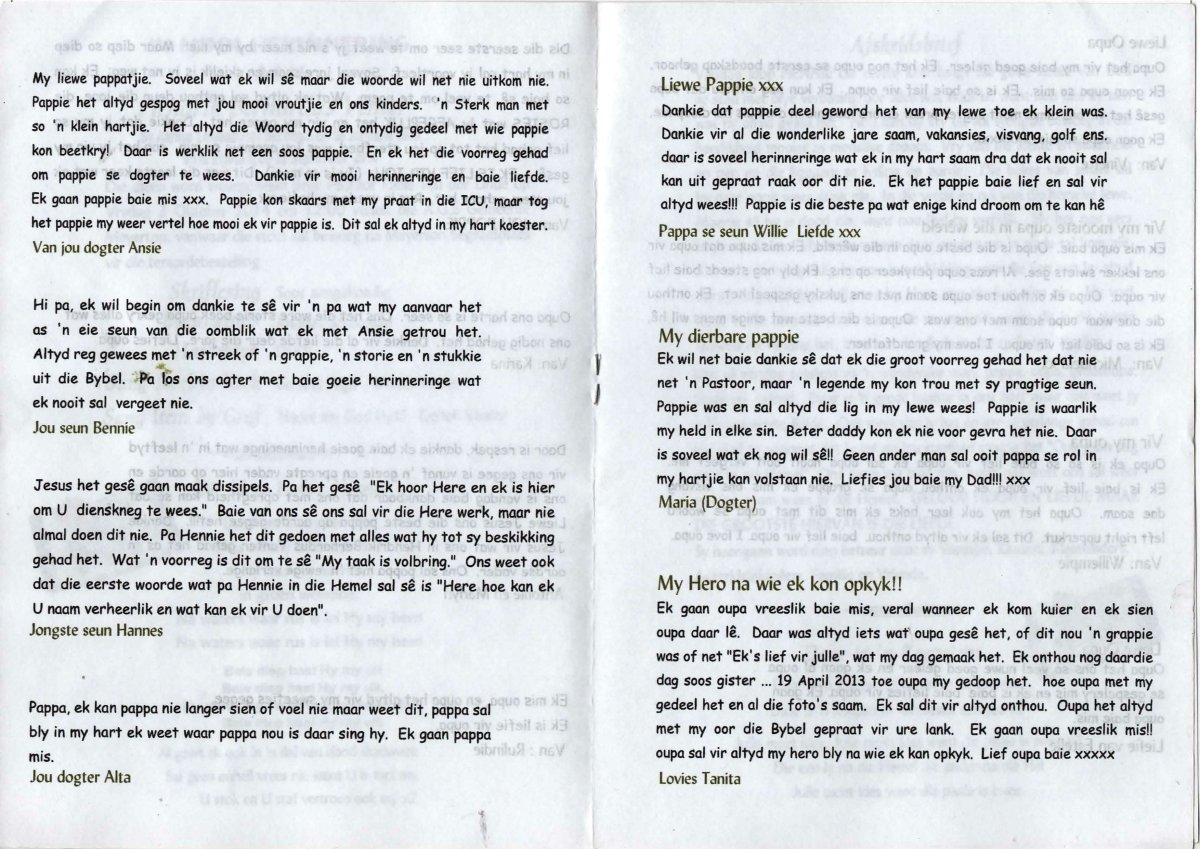 My liewe pappatjie. Soveel wat ek wil sê maar die woorde wil net nie uitkom nie.
Pappie het altyd gespog met jou mooi vroutjie en ons kinders. 'n Sterk man met
so 'n klein hartjie. Het altyd die Woord tydig en ontydig gedeel met wie pappie
kon beetkry! Daar is werklik net een soos pappie. En ek het die voorreg gehad
om pappie se dogter te wees. Dankie vir mooi herinneringe en baie liefde.
Ek gaan pappie baie mis xxx. Pappie kon skaars met my praat in die ICU, maar tog
het pappie my weer vertel hoe mooi ek vir pappie is. Dit sal ek altyd in my hart koester.
Van jou dogter Ansie
Hi pa, ek wil begin om dankie te sê vir 'n pa wat my aanvaar het
as 'n eie seun van die oomblik wat ek met Ansie getrou het.
Altyd reg gewees met 'n streek of 'n grappie, 'n storie en 'n stukkie
uit die Bybel. Pa los ons agter met baie goeie herinneringe wat
ek nooit sal vergeet nie.
Jou seun Bennie
Jesus het gesê gaan maak dissipels. Pa het gesê "Ek hoor Here en ek is hier
om U diensknegte wees." Baie van ons sê ons sal vir die Here werk, maar nie
almal doen dit nie. Pa Hennie het dit gedoen met alles wat hy tot sy beskikking
gehad het. Wat 'n voorreg is dit om te sê "My taak is volbring." Ons weet ook
dat die eerste woorde wat pa Hennie in die Hemel sal sê is "Here hoe kan ek
U naam verheerlik en wat kan ek vir U doen".
Jongste seun Hannes
Pappa, ek kan pappa nie langer sien of voel nie maar weet dit, pappa sal
bly in my hart ek weet waar pappa nou is daar sing hy. Ek gaan pappa
mis.
Jou dogter Alta
Liewe Pappie xxx
Dankie dat pappie deel geword het van my lewe toe ek klein was.
Dankie vir al die wonderlike jare saam, vakansies, visvang, golf ens.
daar is soveel herinneringe wat ek in my hart saam dra dat ek nooit sal
kan uit gepraat raak oor dit nie. Ek het pappie baie lief en sal vir
altyd wees!!! Pappie is die beste pa wat enige kind droom om te kan hê
Pappa se seun Willie Liefde xxx
My dierbare pappie
Ek wil net baie dankie sê dat ek die groot voorreg gehad het dat nie
net 'n Pastoor, maar 'n legende my kon trou met sy pragtige seun.
Pappie was en sal altyd die lig in my lewe wees! Pappie is waarlik
my held in elke sin. Beter daddy kon ek nie voor gevra het nie. Daar
is soveel wat ek nog wil sê!! Geen ander man sal ooit pappa se rol in
my hartjie kan volstaan nie. Liefies jou baie my Dad!!! xxx
Maria (Dogter)
My Hero na wie ek kon opkyk!!
Ek gaan oupa vreeslik baie mis, veral wanneer ek kom kuier en ek sien
oupa daar lê. Daar was altyd iets wat oupa gesê het, of dit nou 'n grappie
was of net "Ek's lief vir julle", wat my dag gemaak het. Ek onthou nog daardie
dag soos gister ... 19 April 2013 toe oupa my gedoop het. hoe oupa met my
gedeel het en al die foto's saam. Ek sal dit vir altyd onthou. Oupa het altyd
met my oor die Bybel gepraat vir ure lank. Ek gaan oupa vreeslik mis!!
oupa sal vir altyd my hero bly na wie ek kan opkyk. Lief oupa baie xxxxx
Lovies Tanita